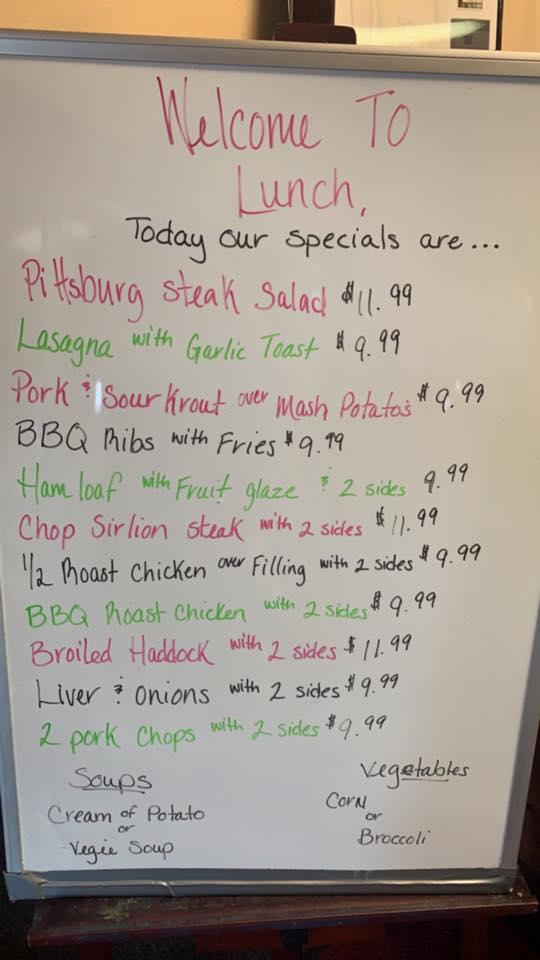 Welcome To
Lunch,
Today our specials are...
Pittsburg steak Salad $11.99
Lasagna with Garlic Toast $9.99
Pork & Sour Krout over Mash Potatos $9.99
BBQ Ribs with Fries $9.99
Ham loaf with Fruit glaze & 2 sides 9.99
Chop Sirlion steak with 2 sides $11.99
1/2 Roast Chicken over Filling with 2 sides $9.99
BBQ Roast Chicken with 2 sides $9.99
Broiled Haddock with 2 sides $11.99
Liver & Onions with 2 sides $9.99
2 pork chops with 2 sides $9.99
Soups
Cream of Potato
or
Vegie Soup
Vegetables
Corn
or
Broccoli